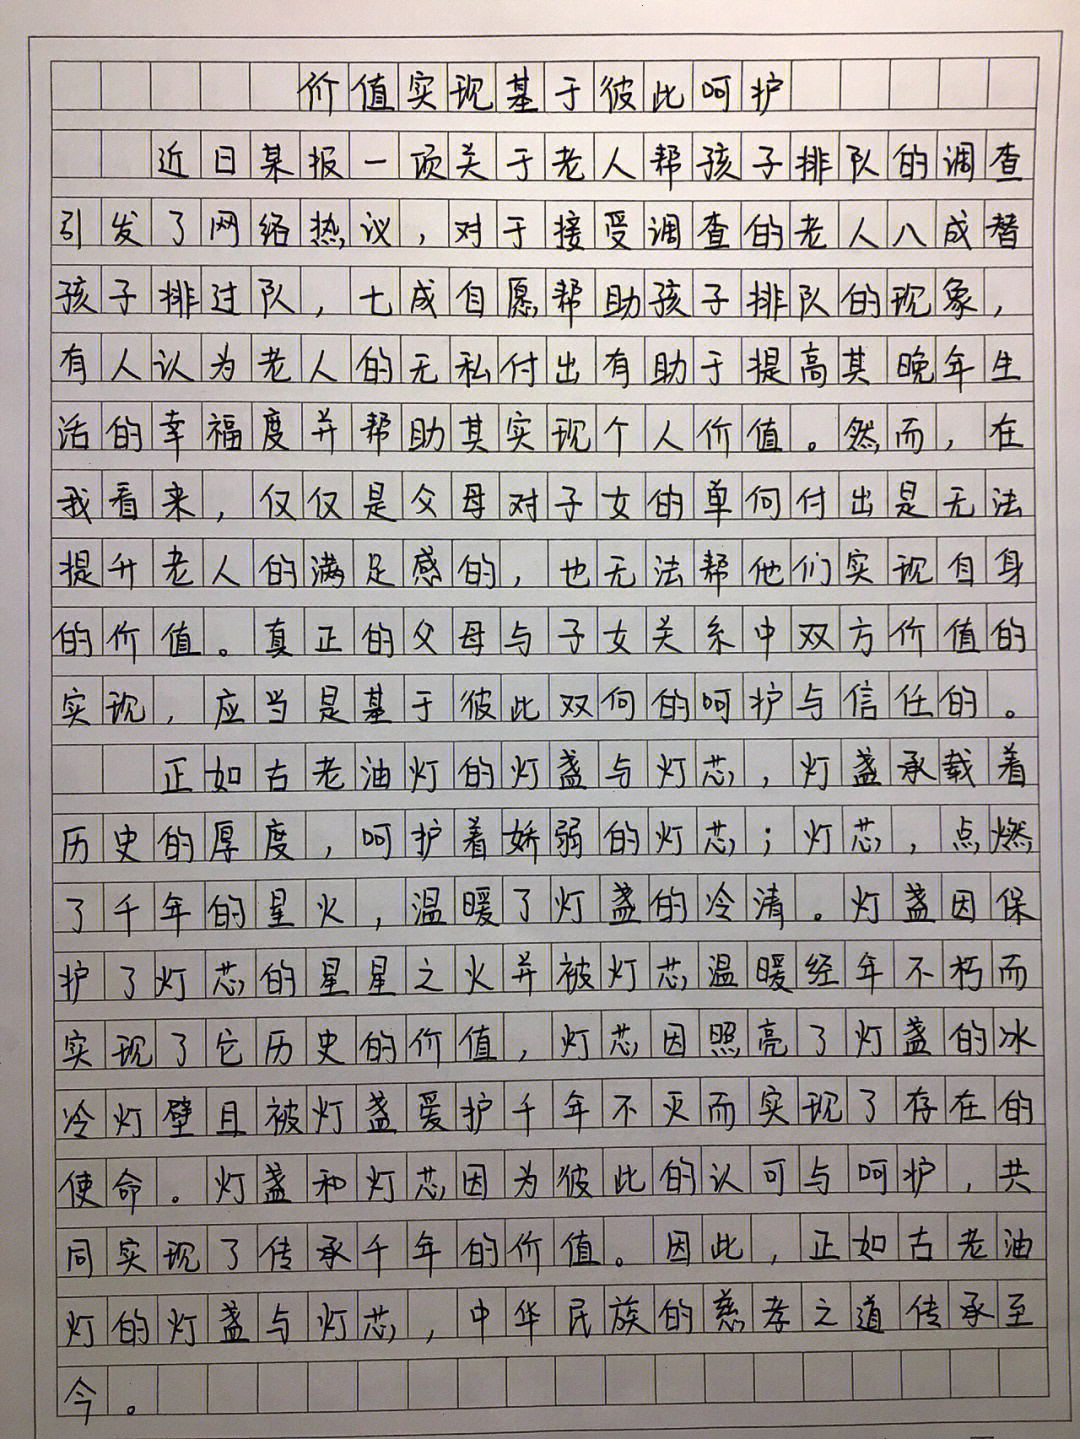 价值实现基于彼此呵护
近日某报一项关于老人帮孩子排队的调查
引发了网络热议，对于接受调查的老人八成替
孩子排过队，七成自愿帮助孩子排队的现象，
有人认为老人的无私付出有助于提高其晚年生
活的幸福度并帮助其实现个人价值。然而，在
我看来，仅仅是父母对子女的单向付出是无法
提升老人的满足感的，也无法帮他们实现自身
的价值。真正的父母与子女关系中双方价值的
实现，应当是基于彼此双向的呵护与信任的。
正如古老油灯的灯盏与灯芯，灯盏承载着
历史的厚度，呵护着娇弱的灯芯；灯芯，点燃
了千年的星火，温暖了灯盏的冷清。灯盏因保
护了灯芯的星星之火并被灯芯温暖经年不朽而
实现了它历史的价值，灯芯因照亮了灯盏的冰
冷灯壁且被灯盏爱护千年不灭而实现了存在的
使命。灯盏和灯芯因为彼此的认可与呵护，共
同实现了传承千年的价值。因此，正如古老油
灯的灯盏与灯芯，中华民族的慈孝之道传承至
今。